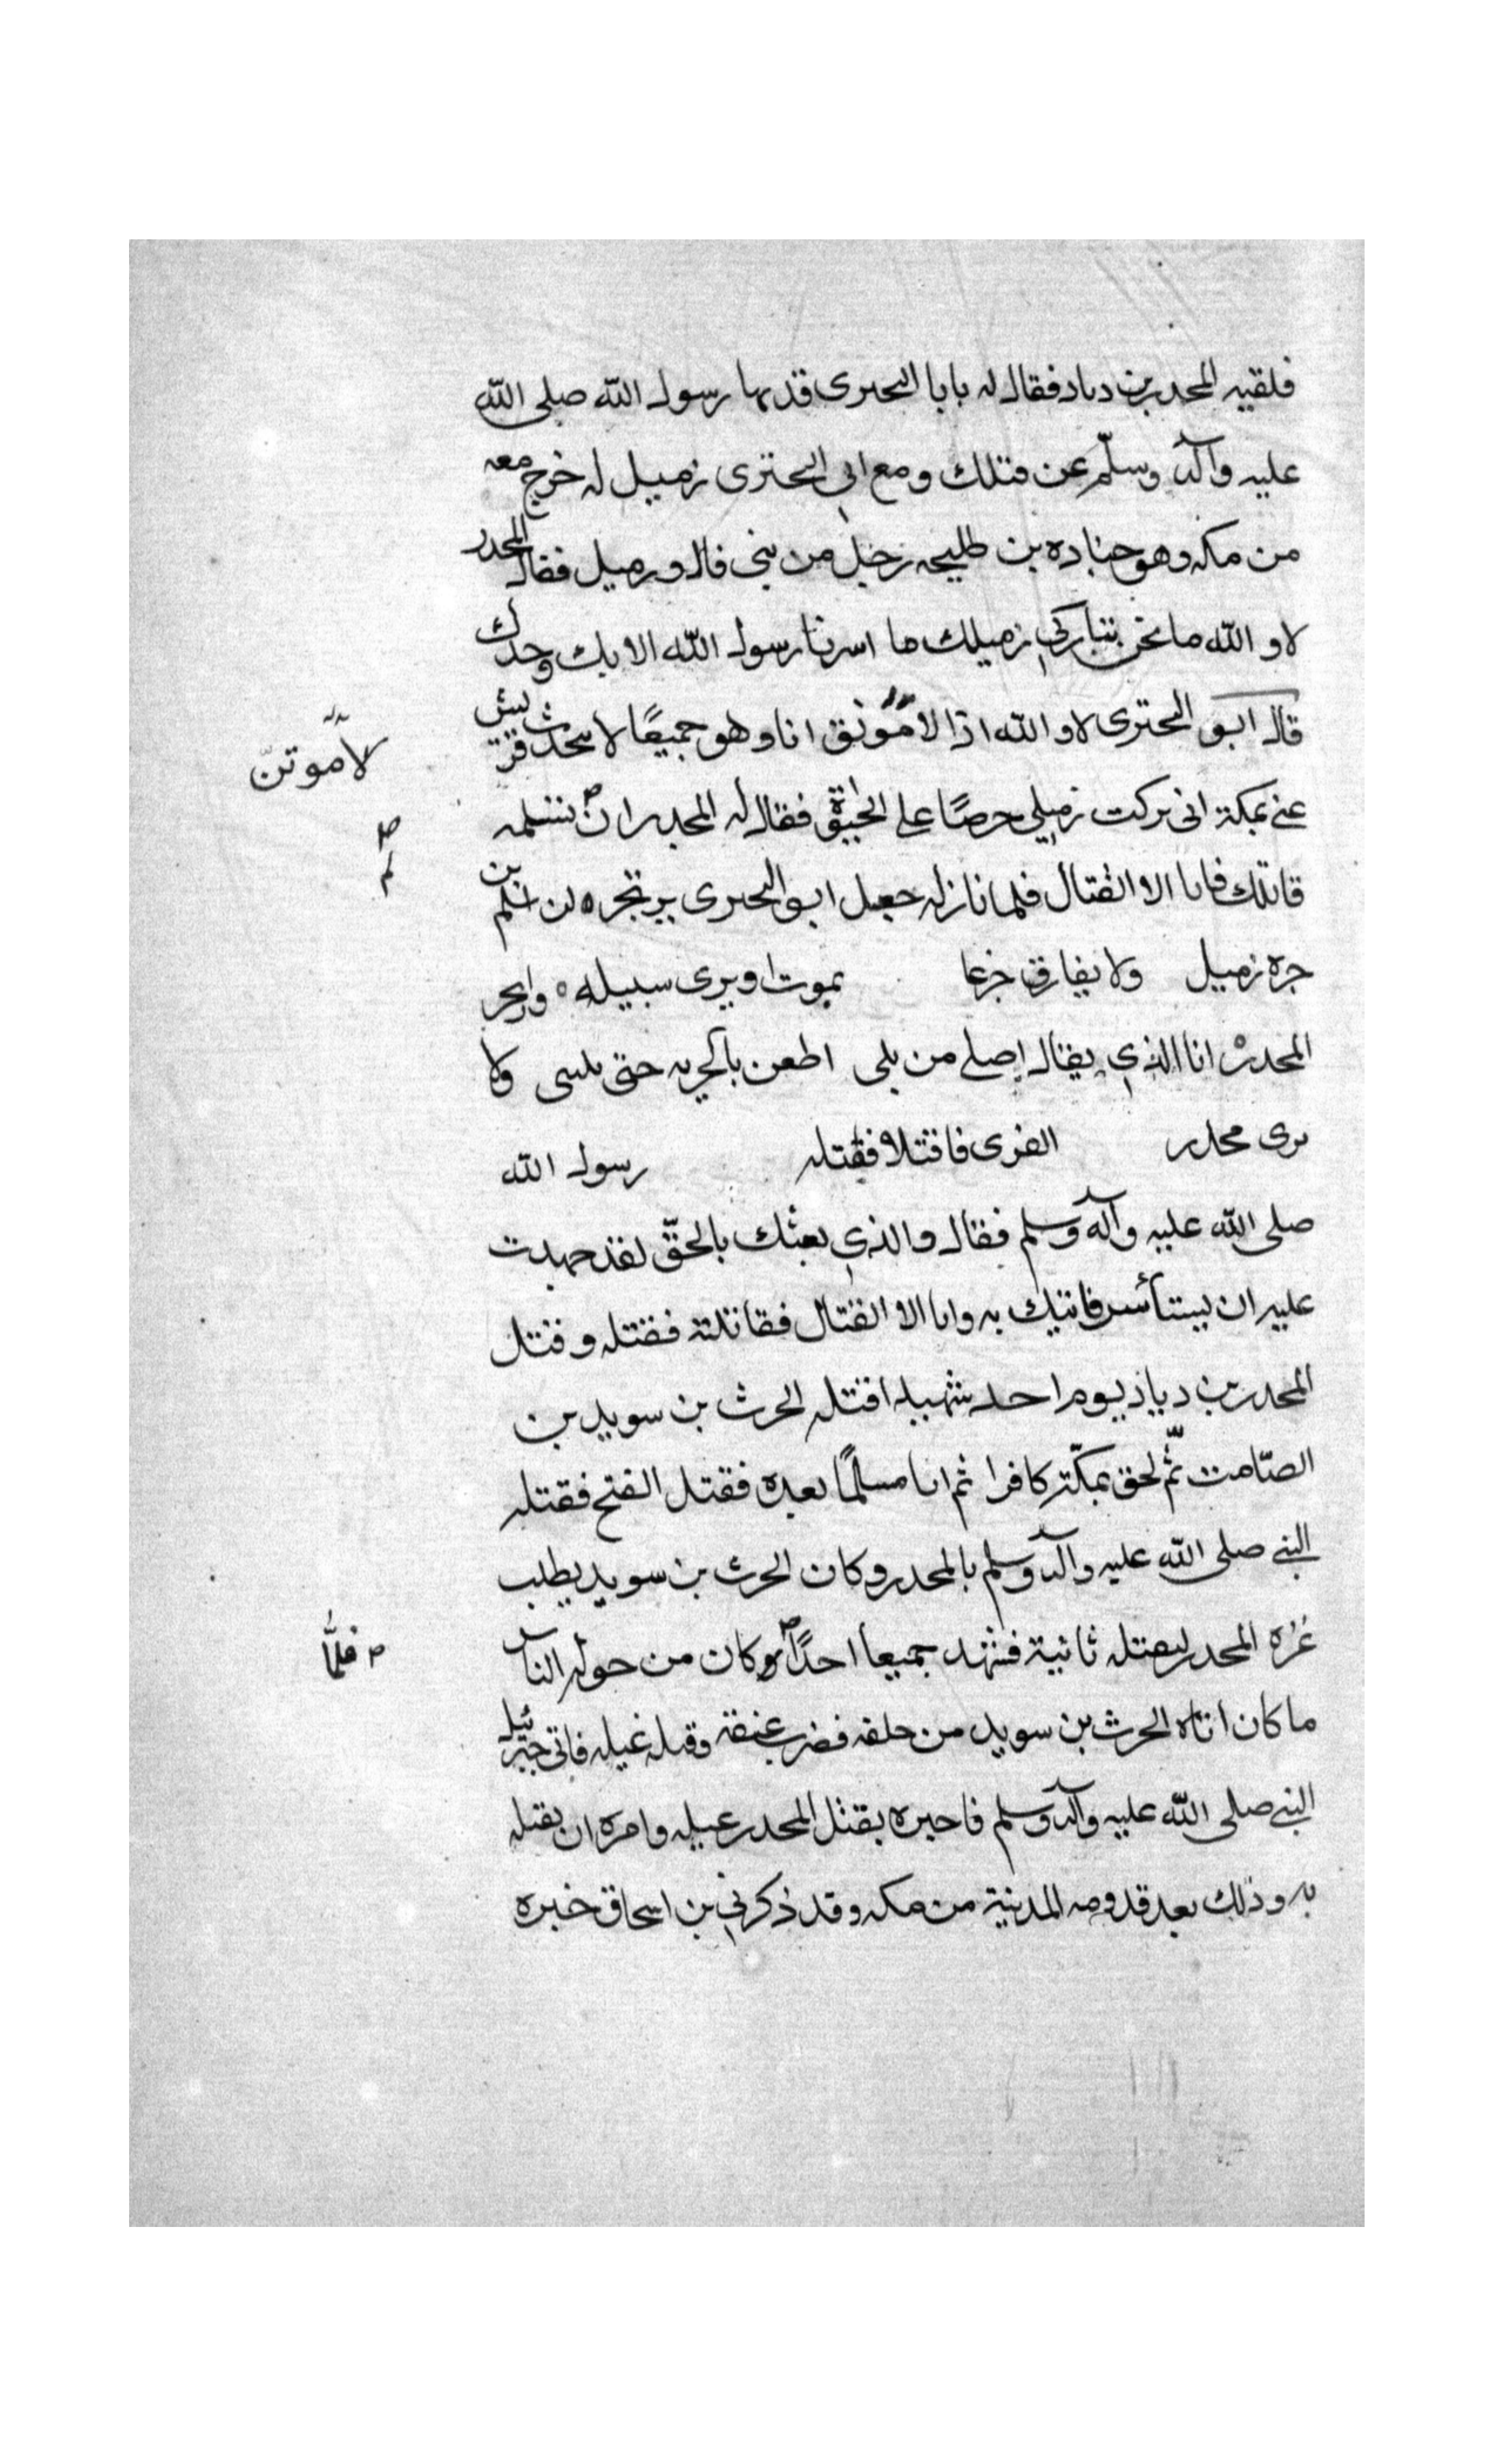 فلقيه المحدر بن دياد فقال له يابا البحترى قد نها رسول الله صلى الله
عليه وآله وسلم عن قتلك ومع ابي البحترى زميل له خرج معه
من مكه وهو جناده بن طليحه رجل من بني قال وزميل فقال المجدر
لا والله ما نحن بتاركي زميلك ما امرنا رسول الله الا بك وحدك
قال ابو البحترى لا والله اذا انا وهو جميعًا لا تتحدث قريش
لآموتنّ
عني بمكة اني تركت زميلي حرصًا على فقال له المجدر ان تسلمه
قاتلك فابا الا القتال فلما نازله جعل ابو البحترى يرتجزه لن يسلم بن
حره زميل ولا يفارق جزعا يموت او يرى سبيله وارتجز
المحدر انا الذي يقال اصلي من بلى اطعن بالحربه حتى ولا
يرى مجدر الفرى فاقتتلا فقتله رسول الله
صلى الله عليه وآله وسلم فقال والذي بعثك بالحقّ لقد جهدت
عليه ان يستأسر فاتيك به وابا الا القتال فقاتلته فقتله وقتل
المحدر بن دياد يوم احد شهيدا قتله الحرث بن سويد بن
الصّامت ثمّ لحق بمكّة كافرا ثم اتا مسلمًا بعده فقتل الفتح فقتله
النبي صلى الله عليه وآله وسلم بالمحدر وكان الحرث بن سويد يطلب
غره المحدر ليقتله ثانية فشهد جميعا احدًا وكان من حوله الناس
فلمّا
ما كان اتاه الحرث بن سويد من خلفه فضرب عنقه وقتله غيله فاتى جبرئيل
النبي صلى الله عليه وآله وسلم فاخبره بقتل المحدر غيله وامره ان يقتله
به وذلك بعد قدومه المدينة من مكه وقد ذكر في بن اسحاق خبره